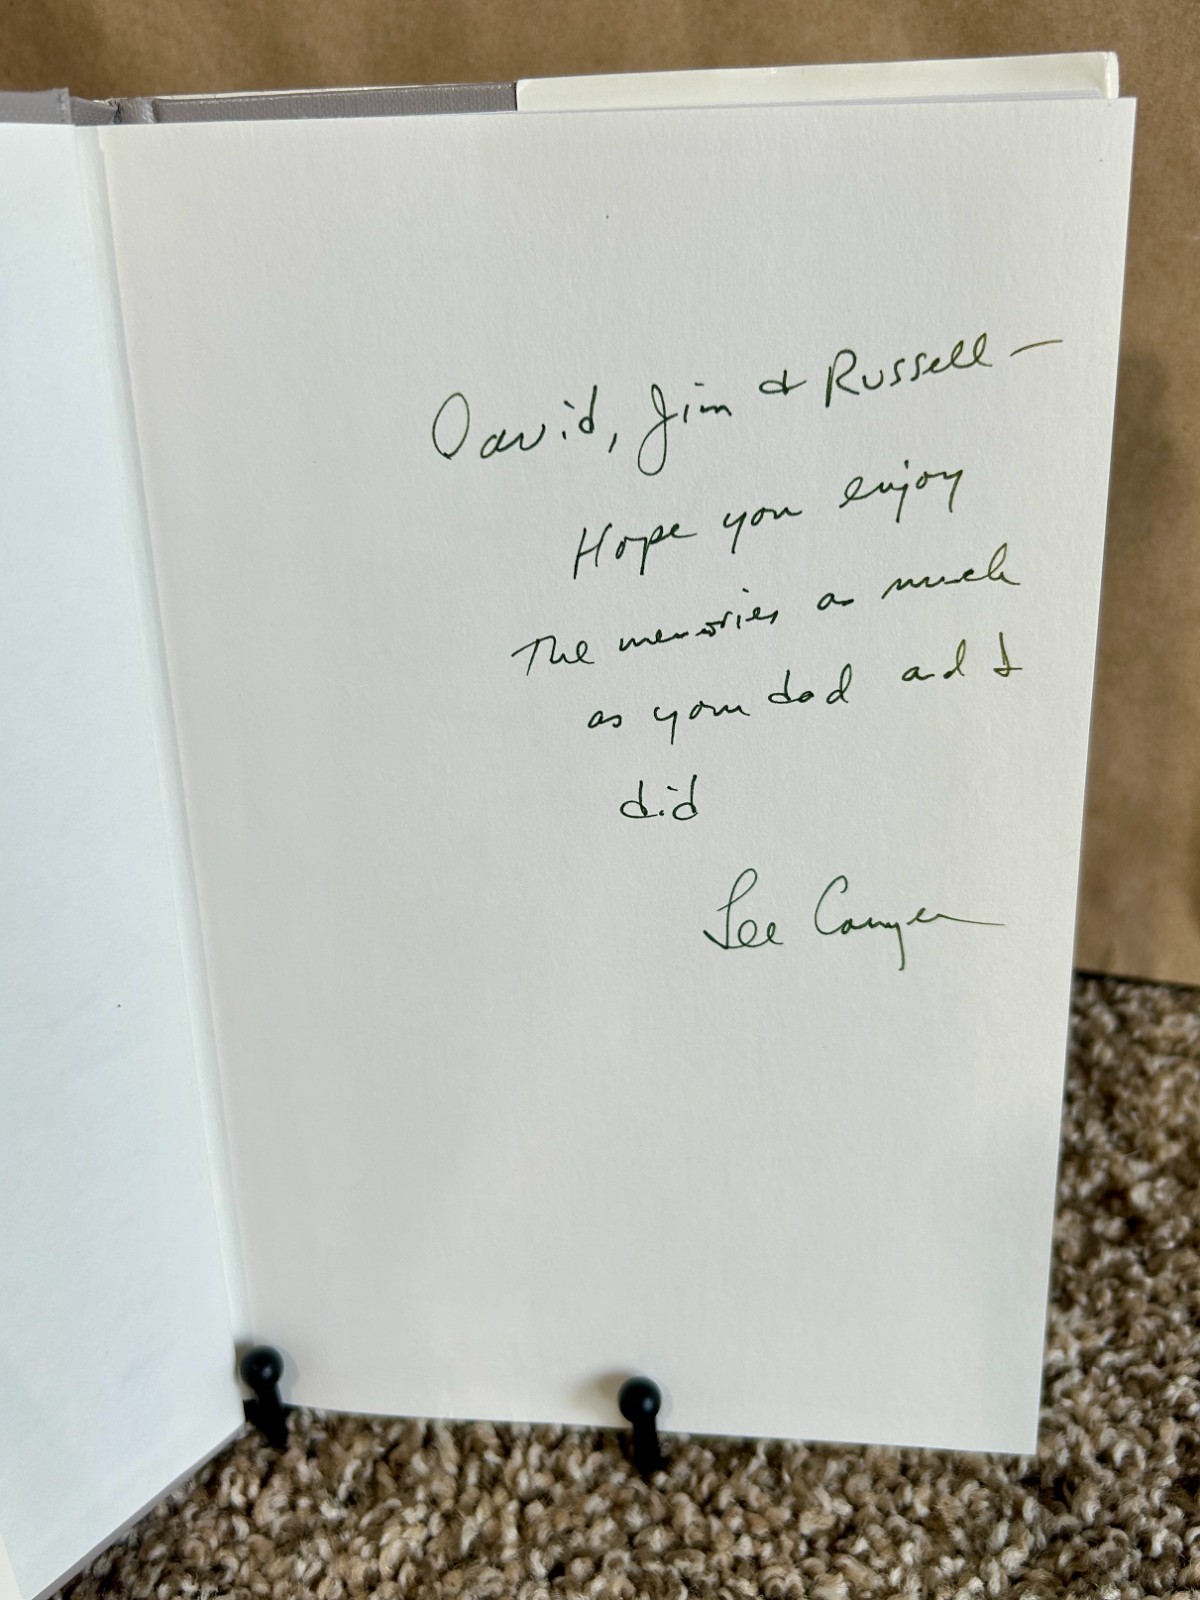 David, Jim & Russell —
Hope you enjoy
The memories as much
as your dad and I
did
Lee